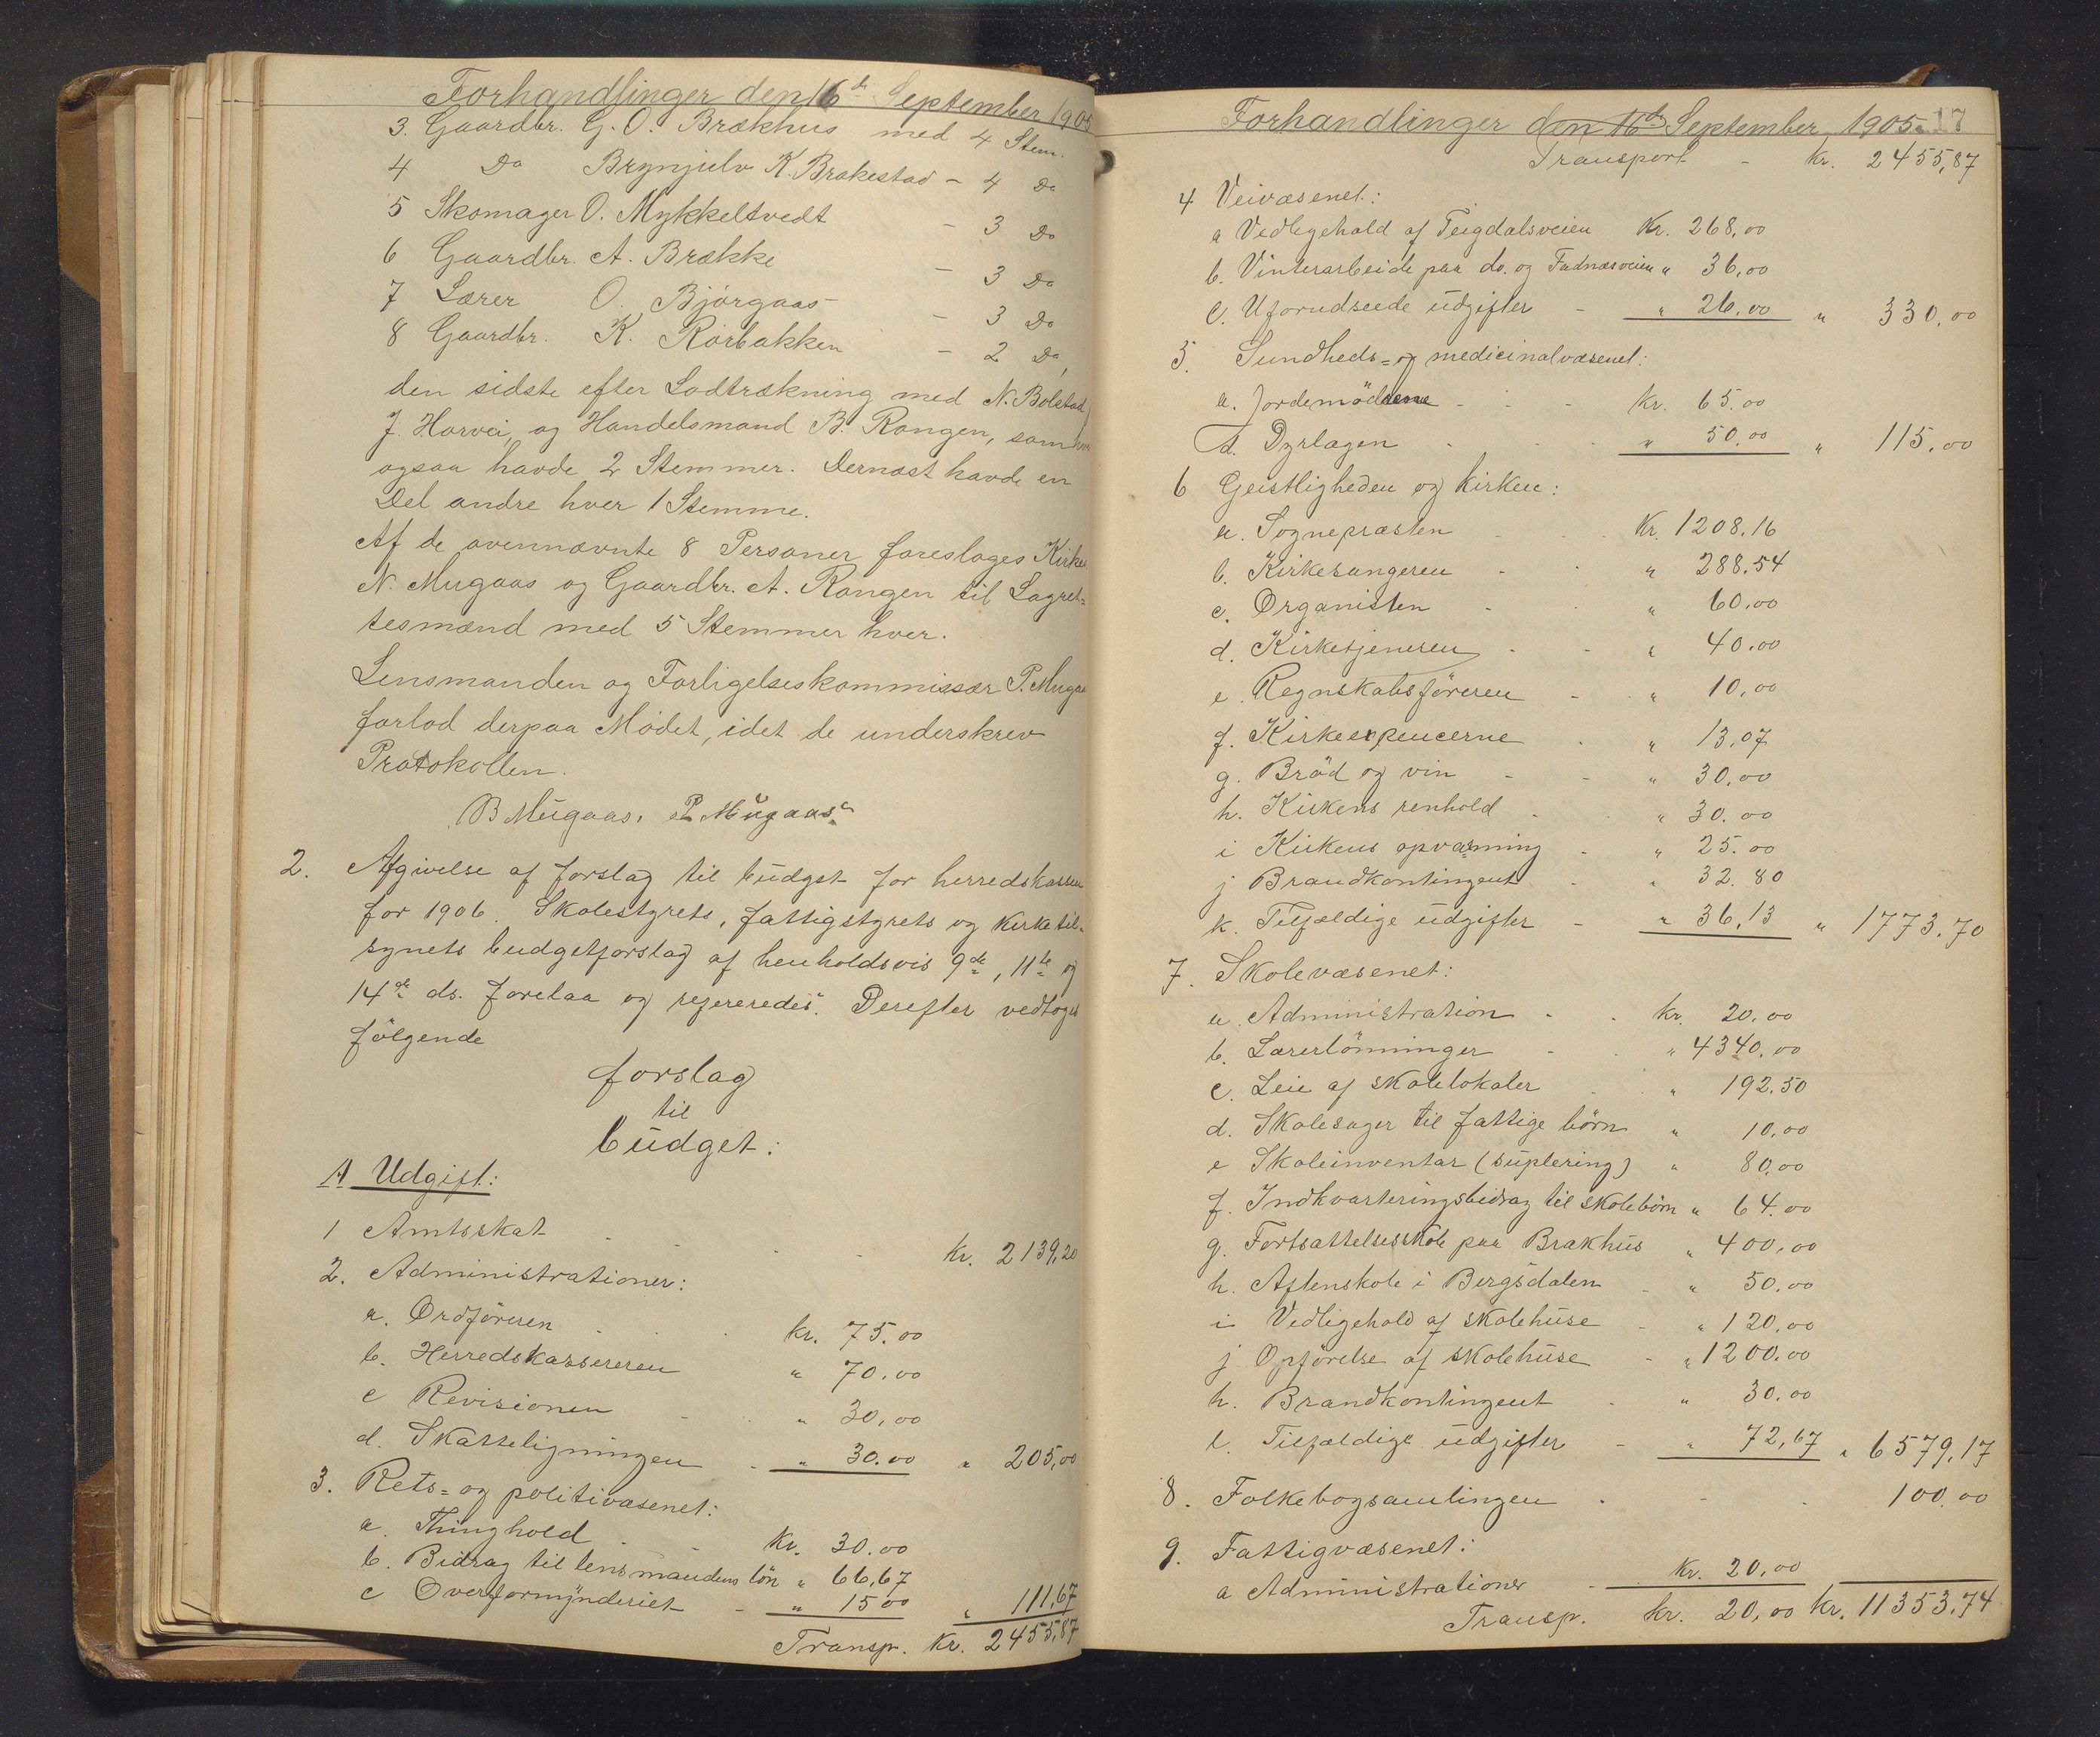 Forhandlinger den 16de September 1905
3. Gaardbr. G. O. Brækhus med 4 Stem.
4 Do Brynjulv K. Brakestad - 4 Do
5 Skomager O. Mykkeltvedt - 3 Do
6 Gaardbr. A. Brække - 3 Do
7 Lærer O. Bjørgaas - 3 Do
8 Gaardbr. K. Rørbakken - 2 Do,
den sidste efter Lodtrækning med N. Bolstad,
J. Horvei, og Handelsmand B. Rongen, som
ogsaa havde 2 Stemmer. Dernæst havde en
Del andre hver 1 Stemme.
Af de ovennævnte 8 Personer foreslages Kirke
N. Mugaas og Gaardbr. A. Rongen til Lagret-
tesmænd med 5 Stemmer hver.
Lensmanden og Forligelseskommissær P. Mugaas
forlod derpaa Mødet, idet de underskrev
Protokollen.
B Mugaas. P. Mugaas
2. Afgivelse af forslag til budget for herredskassen
for 1906. Skolestyrets, fattigstyrets og kirketil-
synets budgetforslag af henholdsvis 9de, 11te og
14de ds. forelaa og refereredes. Derefter vedtoges
følgende
forslag
til
budget:
A Udgift:
1 Amtsskat - - - - kr. 2139,20
2. Administrationer:
a. Ordføreren - - kr. 75.00
b. Herredskassereren " 70.00
c Revisionen - - " 30,00
d. Skatteligningen - " 30.00 " 205,00
3. Rets- og politivæsenet:
a. Thinghold - - kr. 30.00
b. Bidrag til lensmandens løn " 66,67
c Overformynderiet - " 15 00 " 111,67
Transp. kr. 2455,87
Forhandlinger den 16de September 1905. 17
Transport - kr. 2455,87
4 Veivæsenet:
a Vedligehold af Teigdalsveien Kr. 268,00
b. Vinterarbeide paa do. og Fadnæsveien " 36,00
c. Uforudseede udgifter - " 26.00 " 330,00
5. Sundheds- og medicinalvæsenet:
a. Jordemødrene - - - kr. 65.00
b. Dyrlægen - - " 50.00 " 115,00
6 Geistligheden og kirken:
a. Sognepræsten - - Kr. 1208.16
b. Kirkesangeren - - " 288.54
c. Organisten - - " 60,00
d. Kirketjeneren - - " 40.00
e. Regnskabsføreren - - " 10,00
f. Kirkeexpencerne - " 13,07
g. Brød og vin - - " 30,00
h. Kirkens renhold - - " 30.00
i Kirkens opvarmning - " 25.00
j Brandkontingent - " 32.80
k. Tilfældige udgifter - " 36,13 " 1773.70
7. Skolevæsenet:
a. Administration - - kr. 20.00
b. Lærerlønninger - - " 4340.00
c. Leie af skolelokaler - " 192.50
d. Skolesager til fattige børn " 10,00
e Skoleinventar (suplering) " 80,00
f. Indkvarteringsbidrag til skolebørn " 64.00
g. Fortsættelsesskole paa Brækhus " 400,00
h. Aftenskole i Bergsdalen - " 50.00
i Vedligehold af skolehuse - " 120,00
j Opførelse af skolehuse - " 1200.00
k. Brandkontingent - " 30.00
l. Tilfældige udgifter - " 72,67 " 6579,17
8. Folkebogsamlingen - - - 100.00
9. Fattigvæsenet:
a Administrationer - kr. 20,00
Transp. kr. 20,00 kr. 11353,74